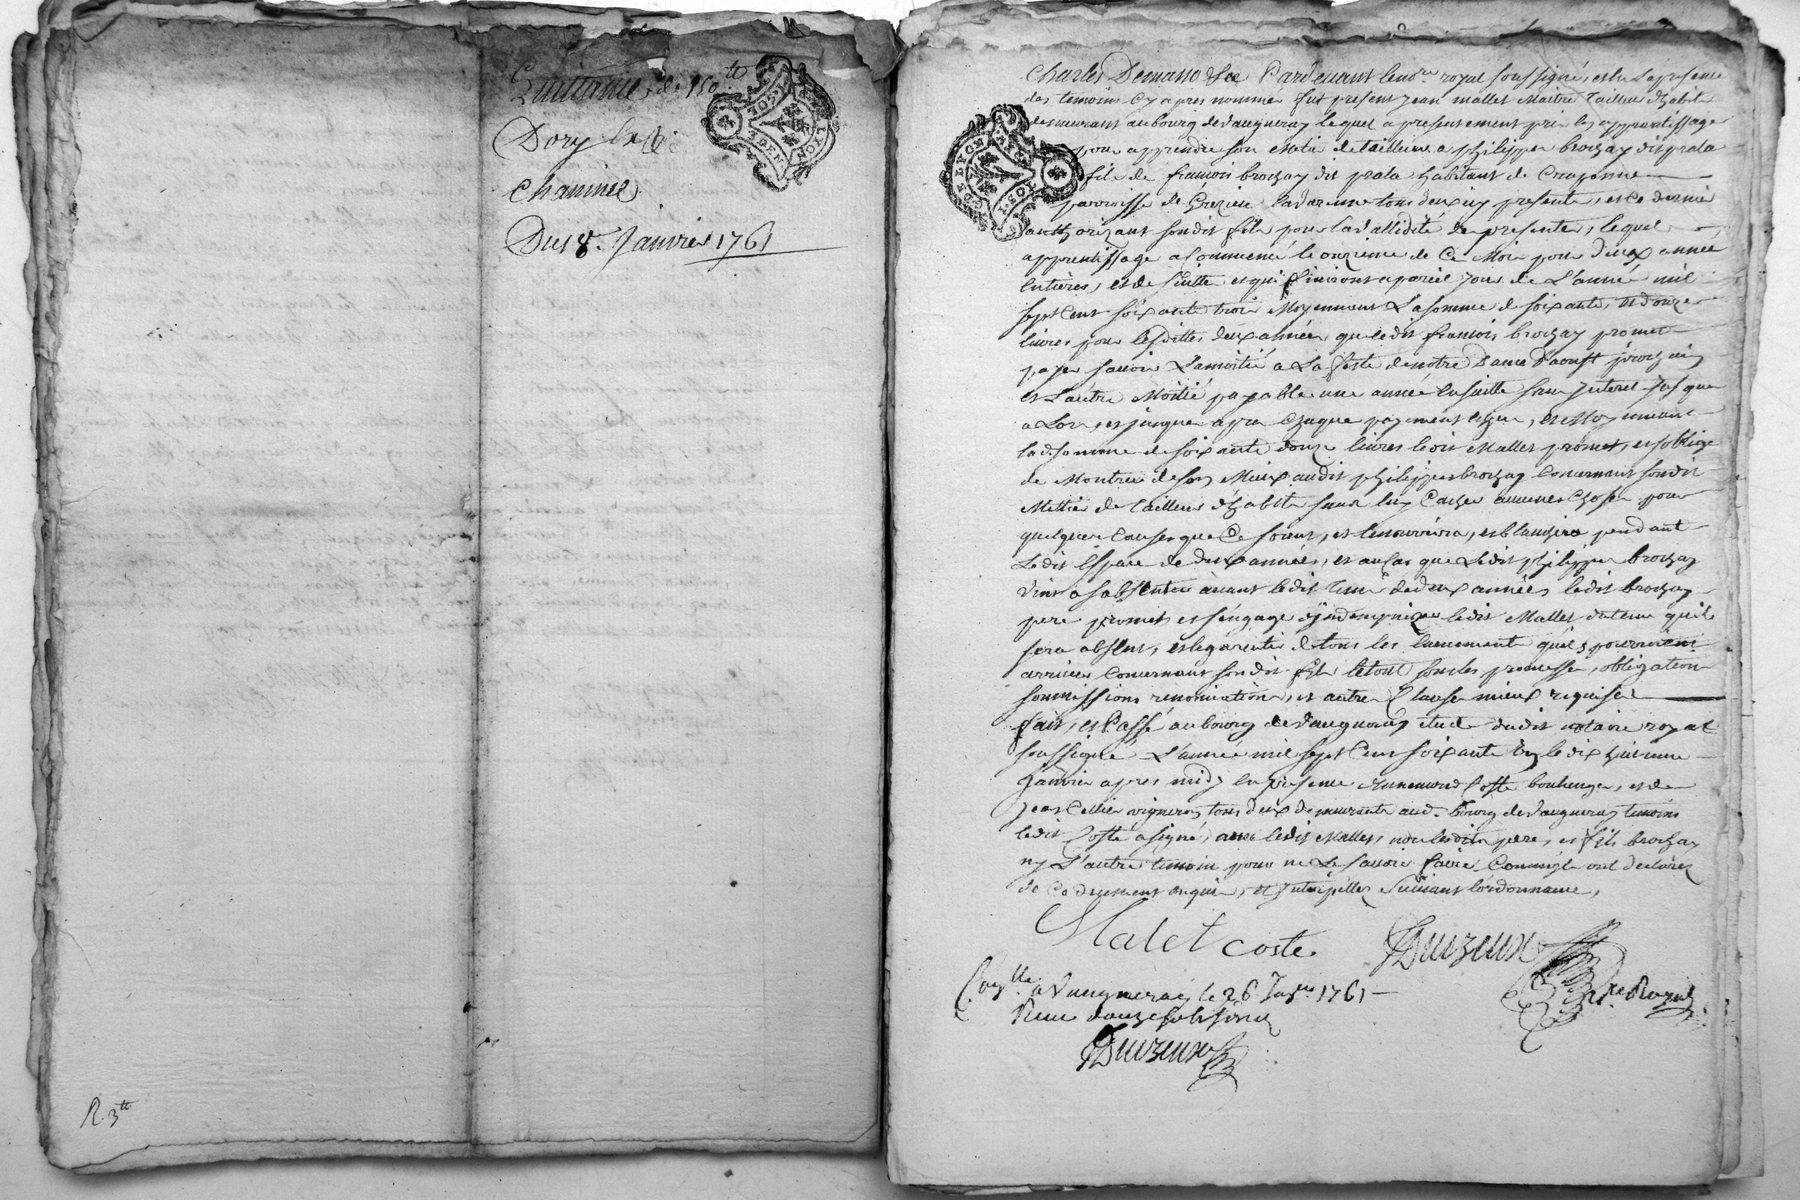 Quittance de 150ᵗᵗ
Dory
Chaunie
Du 18ᵉ Janvier 1761
R. 3ᵗᵗ
Pardevant le no.ʳᵉ royal soussigné, et en la presence
des temoins cy apres nommés fut present Jean mallet Maitre Tailleur d'habits
demeurant au bourg de Vaugneray lequel a presentement pris en apprentissage
pour apprendre son Metier de tailleur a philippe brochay dit prala
fils de francois brochay dit prala habitant de Craponne
parroisse de Grezieu Lavarenne tous deux icy presents, et ce dernier
authorizant son dit fils pour la vallidité des presentes, lequel
apprentissage a commencé le onzieme de Ce Mois pour deux années
entieres, et de suitte et qui finiront a pareil jour de L'année mil
sept Cent soixante trois Moyennant La somme de soixante, et douze
livres pour lesdittes deux années que ledit francois brochay promet
payer savoir La moitié a La feste de notre Dame D'aoust prochain
et L'autre Moitié payable une année ensuitte sans Interet jusque
a Lors, et jusque apres Chaque payement echeu, et Moyennant
la ditte somme de soixante douze livres ledit Mallet promet, et s'oblige
de Montrer de son Mieux audit philippe brochay Concernant sondit
Mettier de tailleur d'habits sans luy Cacher aucunes Choses pour
quelques Causes que Ce soient, et le nourrira, et blanchira pendant
Ledit Espace de deux années, et au Cas que Ledit philippe brochay
vint a s'absenter avant ledit terme de deux années ledit brochay
pere promet et s'engage d'indempnizer ledit Mallet du tems qu'il
sera absent, et le garentir de tous les evenements qui pourroient
arriver Concernant sondit fils le tout sous les promesses, obligations
soumissions renonciations, et autres Clauses mieux requises
fait, et Passé au bourg de Vaugneray etude dudit notaire royal
soussigné L'année mil sept Cent soixante Un le dix huitieme
Janvier apres midy en presence d'Annemond Coste boulanger, et de
Jean Cellier vigneron tous deux demeurants aud. bourg de Vaugneray temoins
ledit Coste a signé avec ledit Mallet, non lesdits pere, et fils brochay
ny L'autre temoin pour ne Le savoir faire Comme ils ont declaré
de Ce deuement enquis, et Interpellés suivant l'ordonnance,
Malet coste Deuzeux
N.ʳᵉ Royal
Con.ˡˡᵉ a Vaugneray le 26 Janv.ʳ 1761
Reçu douze sols
Deuzeux